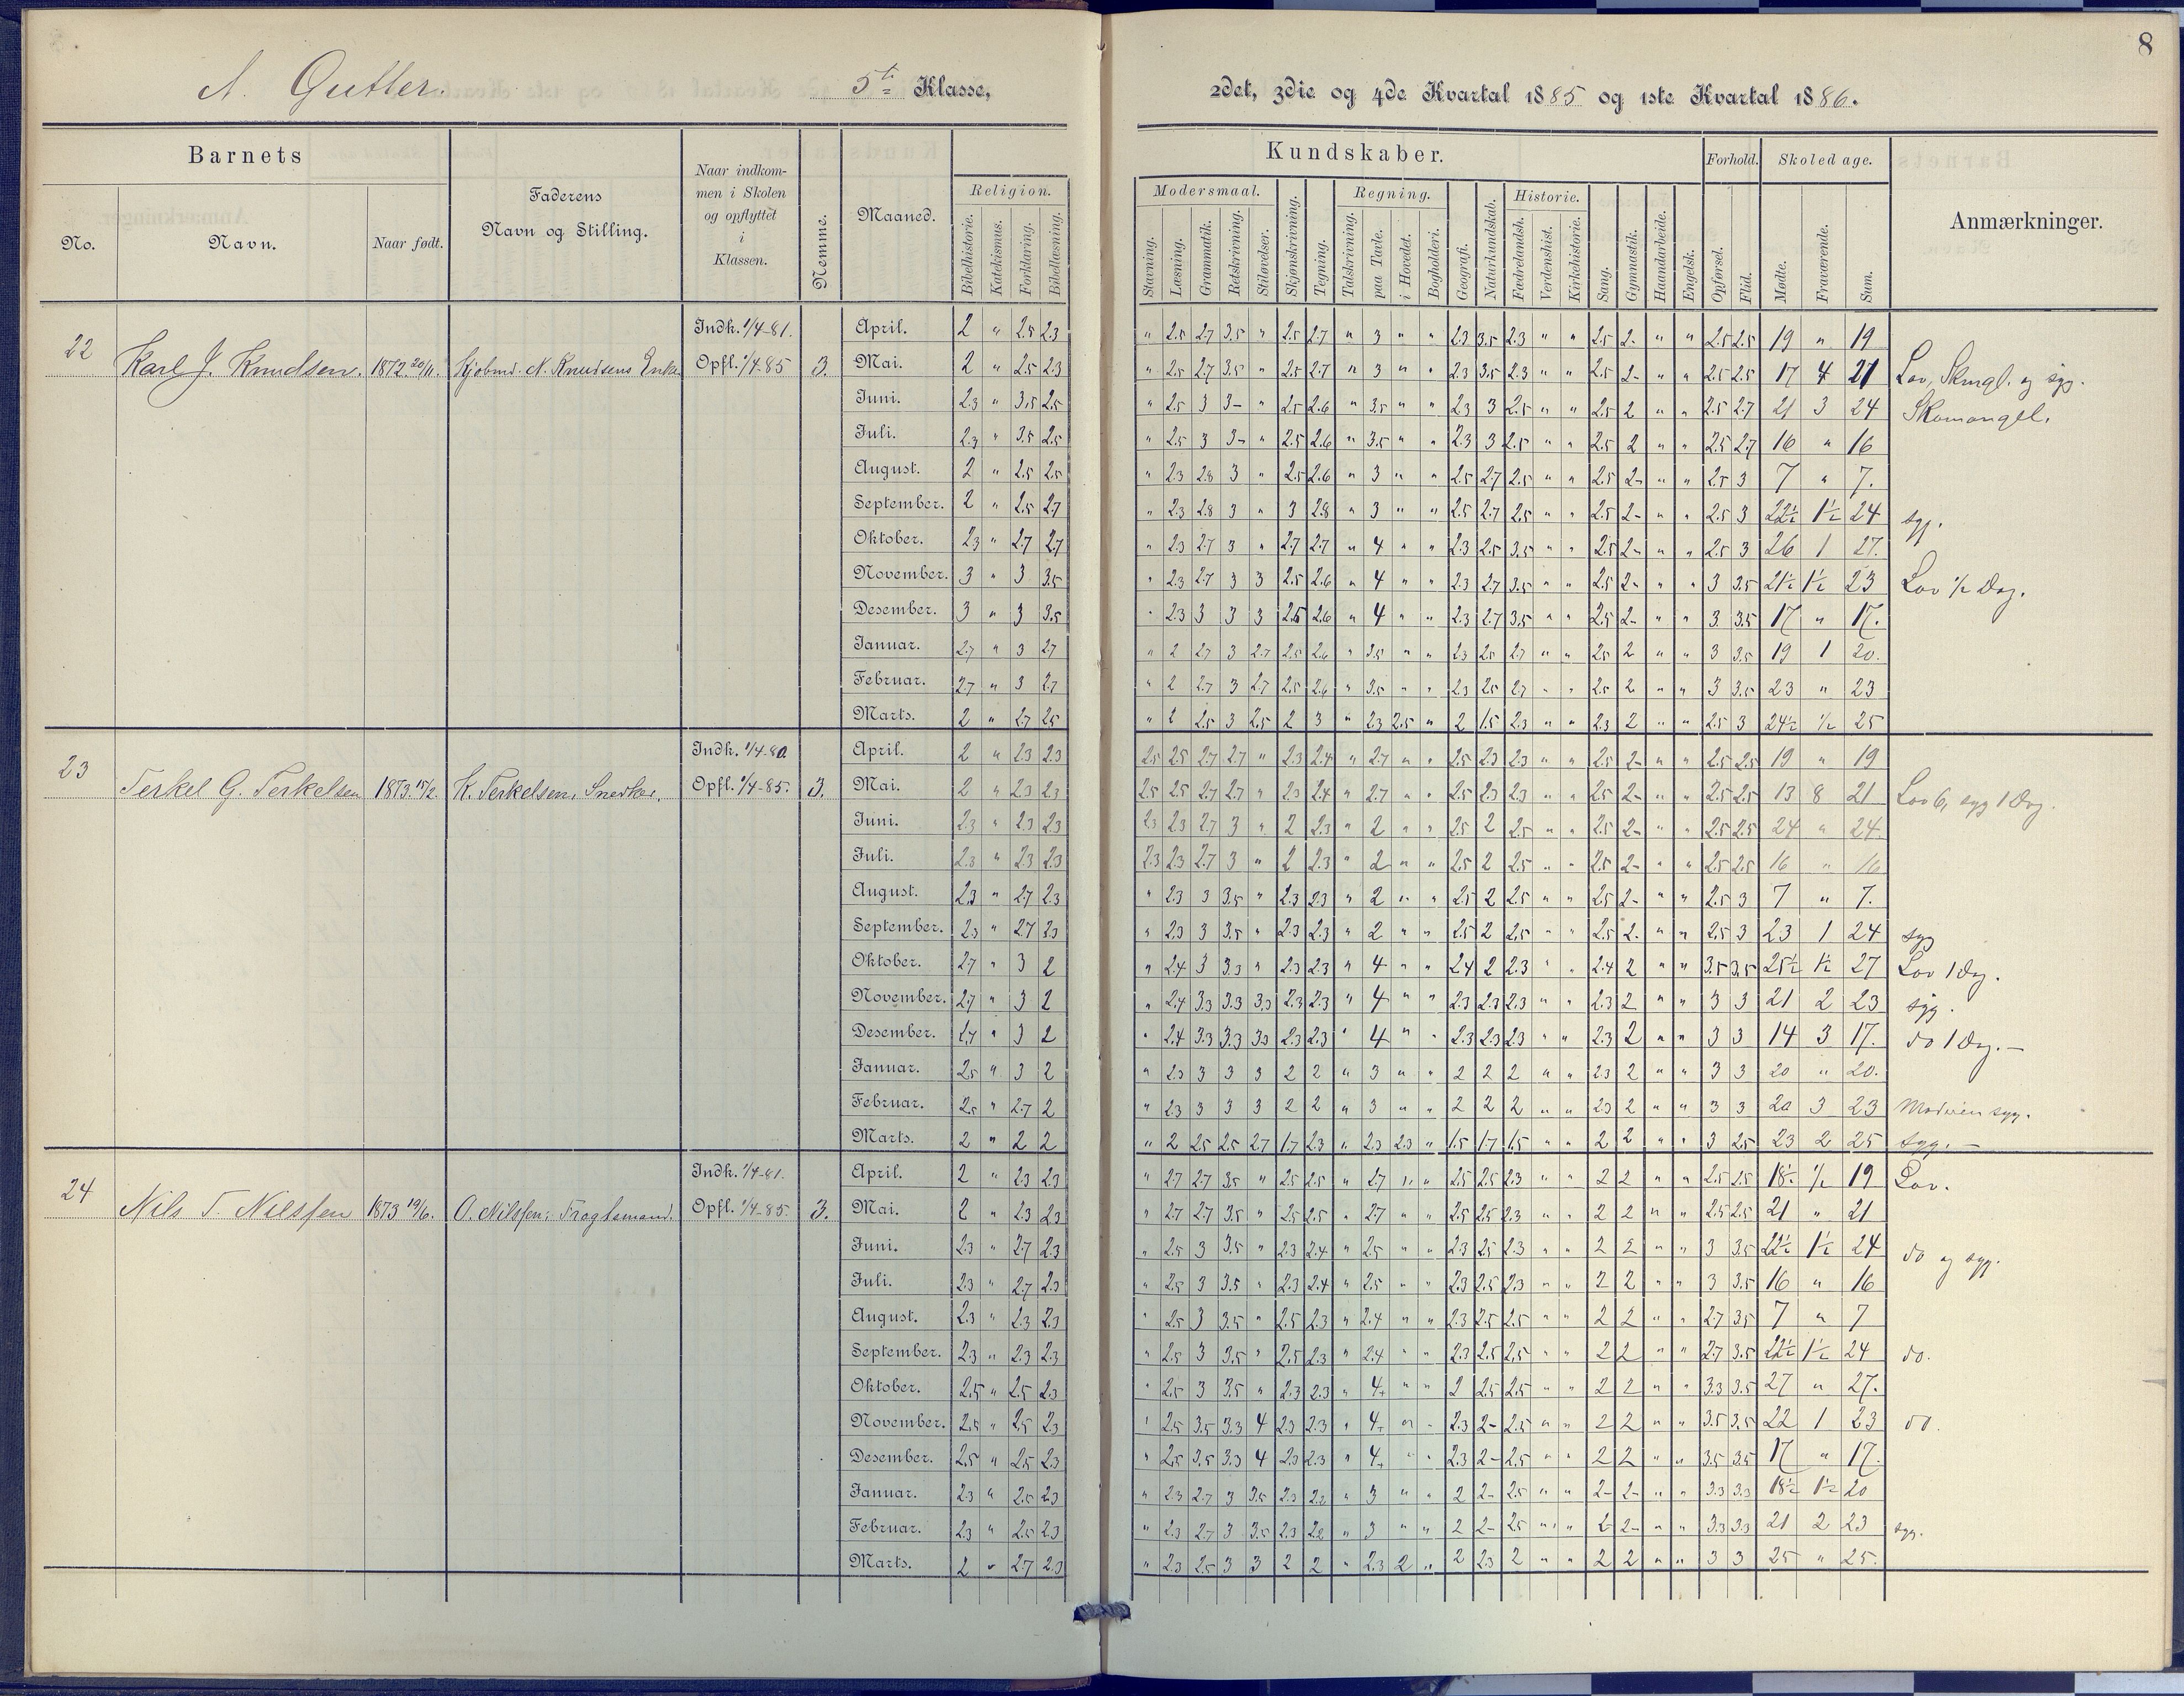 8
A. Gutter. 5te Klasse, 2det, 3die og 4de Kvartal 1885 og 1ste Kvartal 1886.
Barnets
Faderens Navn og Stilling.
Naar indkommen i Skolen og opflyttet i Klassen.
Nemme.
Maaned.
Kundskaber.
Forhold.
Skoledage.
Anmærkninger.
No.
Navn.
Naar født.
Religion.
Bibelhistorie. Katekismus. Forklaring. Bibellæsning.
Modersmaal.
Stavning. Læsning. Grammatik. Retskrivning. Stiløvelser.
Skjønskrivning. Tegning.
Regning.
Talskrivning. paa Tavle. i Hovedet. Bogholderi.
Geografi. Naturkundskab.
Historie.
Fædrelandsh. Verdenshist. Kirkehistorie.
Sang. Gymnastik. Haandarbeide. Engelsk.
Opførsel. Flid.
Mødte. Fraværende. Sum.
22 Karl J. Knudsen. 1872 20/11. Kjøbmd. N. Knudsens Enke Indk. 1/4-81. Opfl. 1/4-85 3.
April. 2 " 2.5 2.3 " 2.5 2.7 3.5 " 2.5 2.7 " 3 " " 2.3 3.5 2.3 " " 2.5 2- " " 2.5 2.5 19 " 19
Mai. 2 " 2.5 2.3 " 2.5 2.7 3.5 " 2.5 2.7 " 3 " " 2.3 3.5 2.3 " " 2.5 2- " " 2.5 2.5 17 4 21 Lov, Skmgl. og syg.
Juni. 2.3 " 3.5 2.5 " 2.5 3 3- " 2.5 2.6 " 3.5 " " 2.3 3 2.5 " " 2.5 2 " " 2.5 2.7 21 3 24 Skomangel.
Juli. 2.3 " 3.5 2.5 " 2.5 3 3- " 2.5 2.6 " 3.5 " " 2.3 3 2.5 " " 2.5 2 " " 2.5 2.7 16 " 16
August. 2 " 2.5 2.5 " 2.3 2.8 3 " 2.5 2.6 " 3 " " 2.5 2.7 2.5 " " 2.5 2- " " 2.5 3 7 " 7.
September. 2 " 2.5 2.7 " 2.3 2.8 3 " 3 2.8 " 3 " " 2.5 2.7 2.5 " " 2.5 2- " " 2.5 3 22½ 1½ 24 syg.
Oktober. 2.3 " 2.7 2.7 " 2.3 2.7 3 " 2.7 2.7 " 4 " " 2.3 2.5 3.5 " " 2.5 2- " " 2.5 3 26 1 27.
November. 3 " 3 3.5 " 2.3 2.7 3 3 2.5 2.6 " 4 " " 2.3 2.7 3.5 " " 2.5 2- " " 3 3.5 21½ 1½ 23 Lov ½ Dag.
Desember. 3 " 3 3.5 " 2.3 3 3 3 2.5 2.6 " 4 " " 2.3 2.7 3.5 " " 2.5 2- " " 3 3.5 17 " 17.
Januar. 2.7 " 3 2.7 " 2 2.7 3 2.7 2.5 2.6 " 3.5 " " 2.3 2.5 2.7 " " 2.5 2 " " 3 3.5 19 1 20.
Februar. 2.7 " 3 2.7 " 2 2.7 3 2.7 2.5 2.6 " 3.5 " " 2.3 2.5 2.7 " " 2.5 2 " " 3 3.5 23 " 23
Marts. 2 " 2.7 2.5 " 2 2.5 3 2.5 2 3 " 2.3 2.5 " 2 1.5 2.3 " " 2.3 2 " " 2.5 3 24½ ½ 25
23 Terkel G. Terkelsen 1873 15/2. K. Terkelsen, Snedker. Indk. 1/4-80. Opfl. 1/4-85. 3.
April. 2 " 2.3 2.3 2.5 2.5 2.7 2.7 " 2.3 2.4 " 2.7 " " 2.5 2.3 2.3 " " 2.5 2- " " 2.5 2.5 19 " 19
Mai. 2 " 2.3 2.3 2.5 2.5 2.7 2.7 " 2.3 2.4 " 2.7 " " 2.5 2.3 2.3 " " 2.5 2- " " 2.5 2.5 13 8 21 Lov 6, syg 1 Dag.
Juni. 2.3 " 2.3 2.3 2.3 2.3 2.7 3 " 2 2.3 " 2 " " 2.5 2 2.5 " " 2.5 2- " " 2.5 2.5 24 " 24.
Juli. 2.3 " 2.3 2.3 2.3 2.3 2.7 3 " 2 2.3 " 2 " " 2.5 2 2.5 " " 2.5 2- " " 2.5 2.5 16 " 16
August. 2.3 " 2.7 2.3 " 2.3 3 3.5 " 2.3 2.3 " 2 " " 2.5 2 2.5 " " 2.5 2- " " 2.5 3 7 " 7.
September. 2.3 " 2.7 2.3 " 2.3 3 3.5 " 2.3 2.3 " 2 " " 2.5 2 2.5 " " 2.5 2- " " 2.5 3 23 1 24 syg
Oktober. 2.7 " 3 2 " 2.4 3 3.3 " 2.3 2.3 " 4 " " 2.4 2 2.3 " " 2.4 2 " " 3.5 3.5 25½ 1½ 27 Lov 1 Dag.
November. 2.7 " 3 2 " 2.4 3.3 3.3 3.3 2.3 2.3 " 4 " " 2.3 2.3 2.3 " " 2.3 2 " " 3 3 21 2 23 syg.
Desember. 2.7 " 3 2 " 2.4 3.3 3.3 3.3 2.3 2.3 " 4 " " 2.3 2.3 2.3 " " 2.3 2 " " 3 3 14 3 17. do 1 Dag. —
Januar. 2.5 " 3 2 " 2.3 3 3 3 2 2 " 3 " " 2 2 2 " " 2.3 2 " " 3 3 20 " 20.
Februar. 2.5 " 2.7 2 " 2.3 3 3 3 2 2 " 3 " " 2 2 2 " " 2.3 2 " " 3 3 20 3 23 Moderen syg.
Marts. 2 " 2 2 " 2 2.5 2.5 2.7 1.7 2.3 " 2.3 2.3 " 1.5 1.7 1.5 " " 2 2 " " 3 2.5 23 2 25 syg. —
24 Nils T. Nilssen 1873 19/6. O. Nilssen, Fragtemand. Indk. 1/4-81. Opfl. 1/4-85. 3.
April. 2 " 2.3 2.3 " 2.7 2.7 3.5 " 2.5 2.5 " 2.7 " " 2.5 2.5 2.3 " " 2 2 " " 2.5 2.5 18½ ½ 19 Lov.
Mai. 2 " 2.3 2.3 " 2.7 2.7 3.5 " 2.5 2.5 " 2.7 " " 2.5 2.5 2.3 " " 2 2 " " 2.5 2.5 21 " 21
Juni. 2.3 " 2.7 2.3 " 2.5 3 3.5 " 2.3 2.4 " 2.5 " " 2.3 2.5 2.3 " " 2 2 " " 3 3.5 22½ 1½ 24 do og syg.
Juli. 2.3 " 2.7 2.3 " 2.5 3 3.5 " 2.3 2.4 " 2.5 " " 2.3 2.5 2.3 " " 2 2 " " 3 3.5 16 " 16
August. 2.3 " 2.3 2.3 " 2.5 3 3.5 " 2.5 2.3 " 2.4 " " 2.3 2.5 2.5 " " 2 2 " " 2.7 3.5 7 " 7
September. 2.3 " 2.3 2.3 " 2.5 3 3.5 " 2.5 2.3 " 2.4 " " 2.3 2.5 2.5 " " 2 2 " " 2.7 3.5 22½ 1½ 24 do.
Oktober. 2.5 " 2.5 2.3 " 2.5 3 3.5 " 2.3 2.3 " 4+ " " 2 2.5 2.5 " " 2 2 " " 3.3 3.5 27 " 27.
November. 2.5 " 2.5 2.3 " 2.5 3.5 3.3 4 2.3 2.3 " 4+ " " 2.3 2- 2.5 " " 2 2 " " 3.5 3.5 22 1 23 do.
Desember. 2.5 " 2.5 2.3 " 2.5 3.5 3.3 4 2.3 2.3 " 4+ " " 2.3 2- 2.5 " " 2 2 " " 3.5 3.5 17 " 17.
Januar. 2.3 " 2.5 2.3 " 2.3 2.7 3 3.5 2.3 2.2 " 3 " " 2 2- 2.5 " " 2- 2- " " 3.3 3.3 18½ 1½ 20
Februar. 2.3 " 2.5 2.3 " 2.3 2.7 3 3.5 2.3 2.2 " 3 " " 2 2- 2.5 " " 2- 2- " " 3.3 3.3 21 2 23 syg.
Marts. 2 " 2.7 2.3 " 2.3 2.5 3 3 2 2 " 2.3 2 " 2 2.3 2 " " 2 2 " " 3 3 25 " 25.